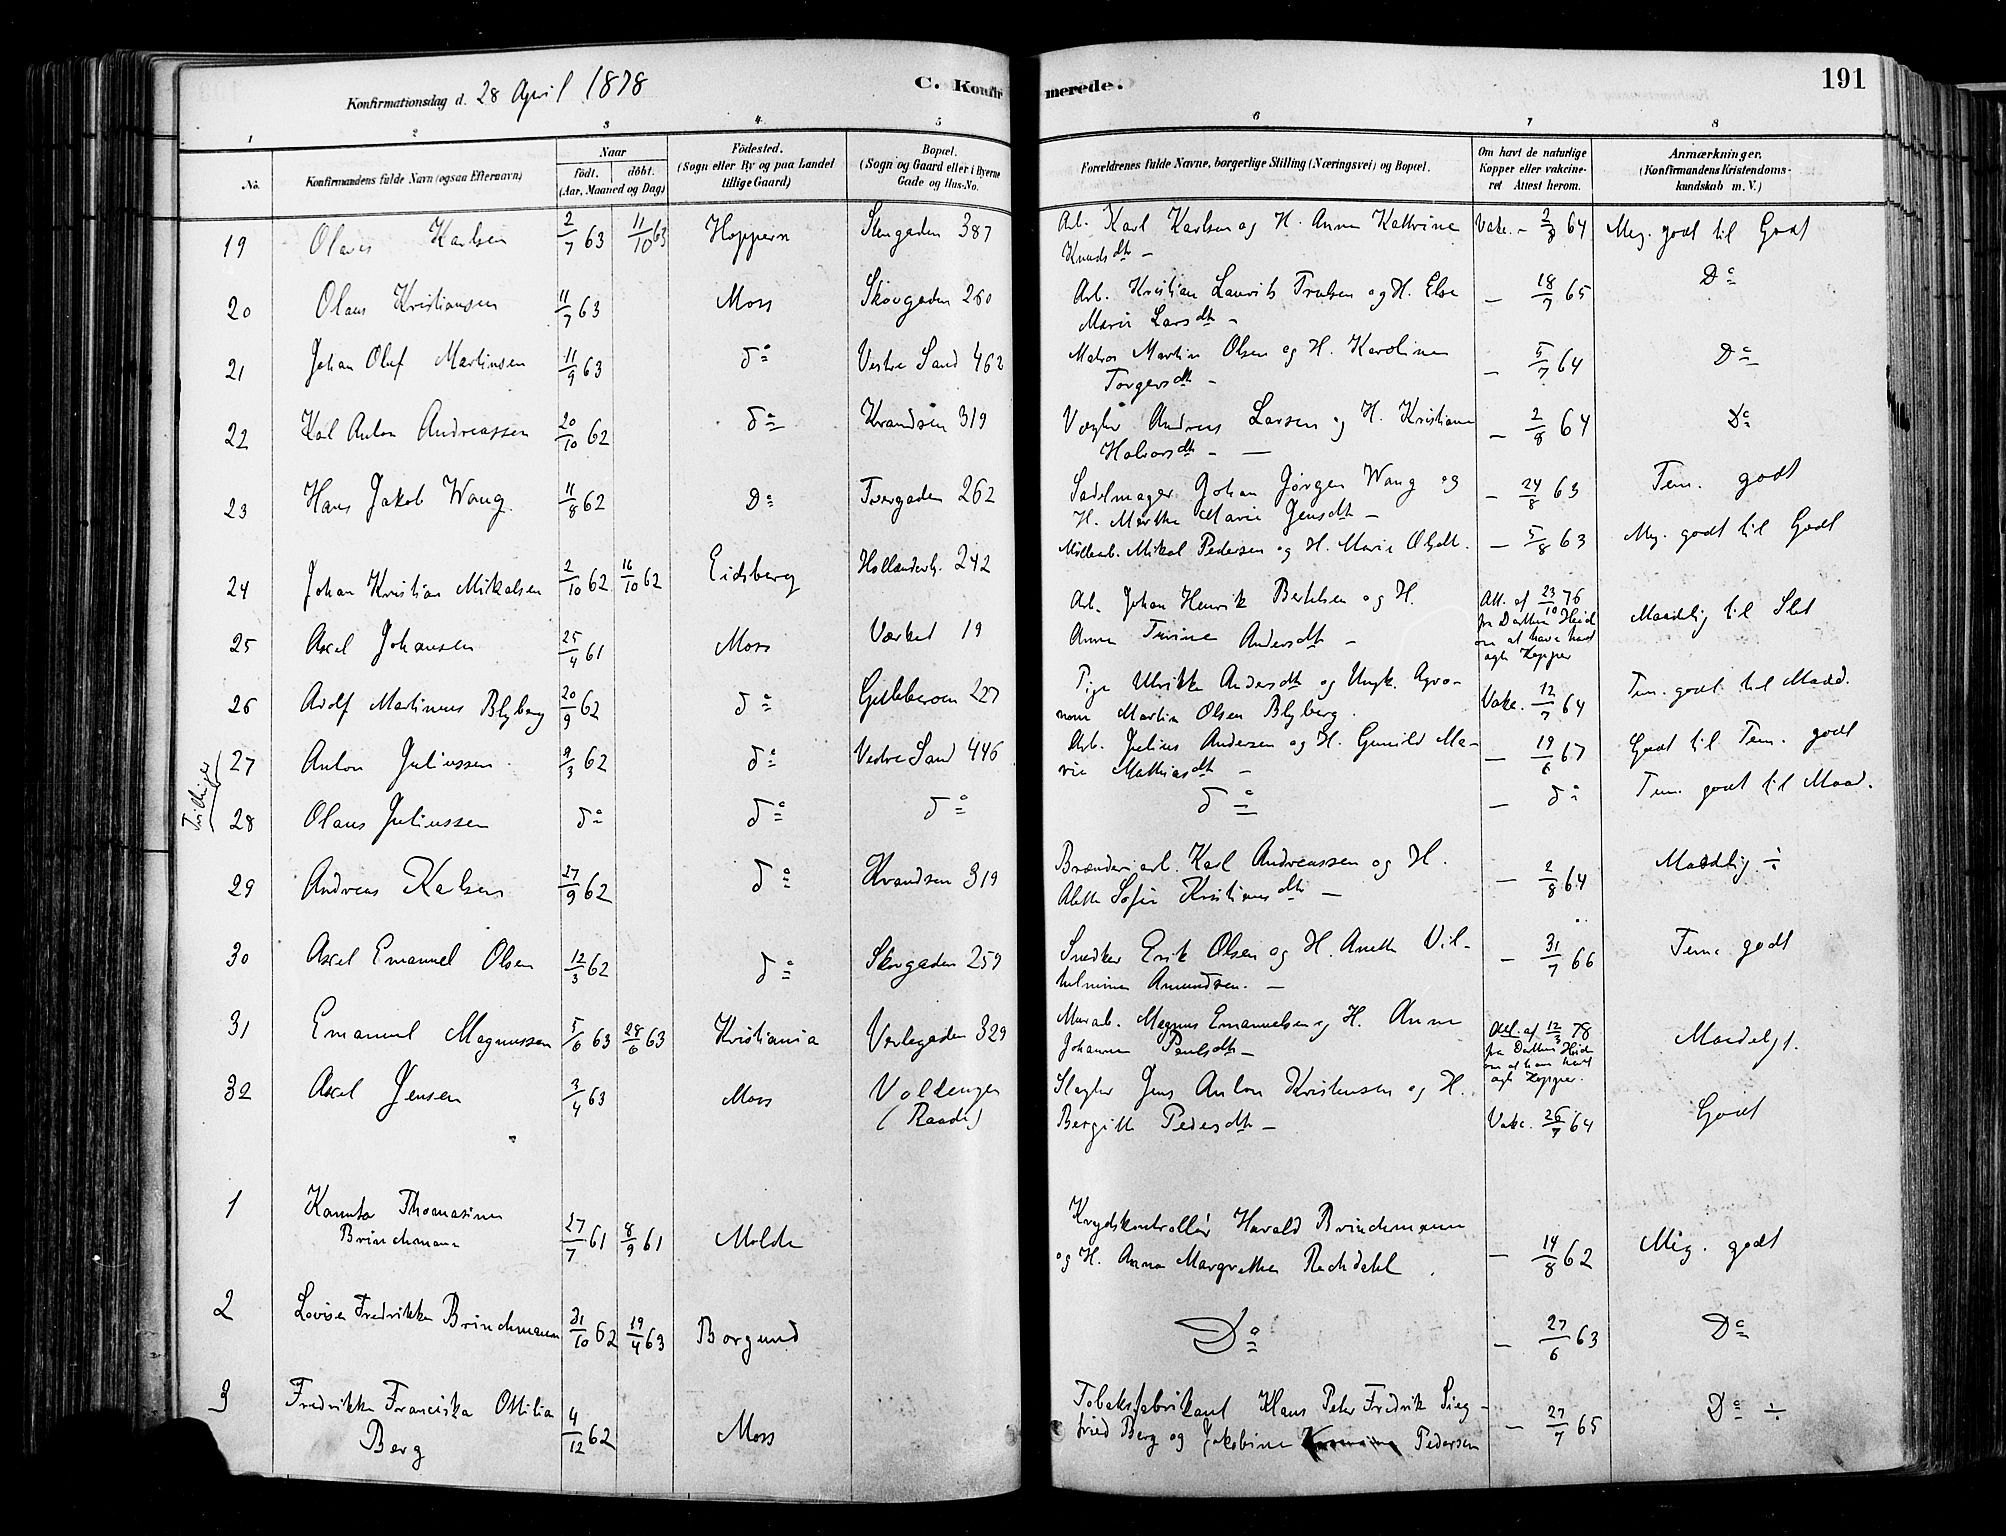 Konfirmationsdag d. 28 April 1878
C. Konfirmerede.
191
1 2 3 4 5 6 7 8
No.
Konfirmandens fulde Navn (ogsaa Efternavn)
Naar
født. døbt.
(Aar, Maaned og Dag)
Fødested.
(Sogn eller By og paa Landet
tillige Gaard)
Bopæl.
(Sogn og Gaard eller i Byerne
Gade og Hus-No.
Forældrenes fulde Navne, borgerlige Stilling (Næringsvei) og Bopæl.
Om havt de naturlige
Kopper eller vakcine-
ret Attest herom.
Anmærkninger.
(Konfirmandens Kristendoms-
kundskab m. V.)
19 Olaves Karlsen 2/7 63 11/10 63 Hoppern Stengaden 387 Arb. Karl Karlsen og H. Anne Kathrine Vakc. - 2/8 64 Meg. godt til Godt
Knudsdtr -
20 Olaus Kristiansen 11/7 63 Moss Skovgaden 260 Arb. Kristian Laurits Trulsen og H. Else - 18/7 65 Do
Marie Larsdtr -
21 Johan Oluf Martinsen 11/9 63 do Vestre Sand 462 Matros Martin Olsen og H. Karoline - 5/7 64 Do
Torgersdtr -
22 Karl Anton Andreassen 20/10 62 do Krandsen 319 Vægter Andreas Larsen og H. Kristiane - 2/8 64 Do
Halvorsdtr -
23 Hans Jakob Wang 11/8 62 Do Tvergaden 262 Sadelmager Johan Jørgen Wang og - 24/8 63 Tem. godt
H. Marthe Marie Jensdtr -
24 Johan Kristian Mikalsen 2/10 62 16/10 62 Eidsberg Hollenderb. 242 Møllearb. Mikal Pedersen og H. Marie Olsdtr. - 5/8 63 Meg. godt til Godt
25 Axel Johansen 25/4 61 Moss Værket 19 Arb. Johan Henrik Bertelsen og H.
Anne Trine Andersdtr -
Att. af 23/10 76
fra Dokter Heide
om at have havt
ægte Kopper
Maadelig til Slet
26 Adolf Martinius Blyberg 20/9 62 do Gulebroen 227 Pige Ulrikke Andersdtr og Ungk. Agro- Vakc. 12/7 64 Tem. godt til Maad.
nom Martin Olsen Blyberg.
Tvillinger
27 Anton Juliussen 9/3 62 do Vestre Sand 446 Arb. Julius Andersen og H. Gunild Ma- - 19/6 67 Godt til Tem. godt
rie Mathiasdtr -
28 Olaus Juliussen do do do do - do Tem. godt til Maad.
29 Andreas Karlsen 27/9 62 do Krandsen 319 Brænderiarb. Karl Andreassen og H. - 2/8 64 Maadelig ÷
Alette Sofie Kristiansdtr -
30 Axel Emanuel Olsen 12/3 62 do Skovgaden 259 Snedker Erik Olsen og H. Anette Vil- - 31/7 66 Tem. godt
helmine Amundsen. -
31 Emanuel Magnussen 5/6 63 28/6 63 Kristiania Verlegaden 329 Murarb. Magnus Emanuelsen og H. Anne
Johanne Paulsdtr -
Att. af 12/3 78
fra Dokter Heide
om at have havt
ægte Kopper.
Maadelgt.
32 Axel Jensen 3/4 63 Moss Voldenger
(Raade)
Slagter Jens Anton Kristensen og H.
Bergitte Pedersdtr - Vakc. 26/7 64 Godt
1 Kamita Thomasine
Brinchmann 27/7 61 8/9 61 Molde
Krydskontrollør Harald Brinchmann
og H. Anna Margrethe Rachdahl. - 14/8 62 Meg. godt
2 Lovise Fredrikke Brinchmann 31/10 62 19/4 63 Borgund Do - 27/6 63 Do
3 Fredrikke Franciska Ottilia
Berg 4/12 62 Moss
Tobaksfabrikant Hans Peter Fredrik Sieg-
fried Berg og Jakobine Pedersen - 27/7 65 Do ÷